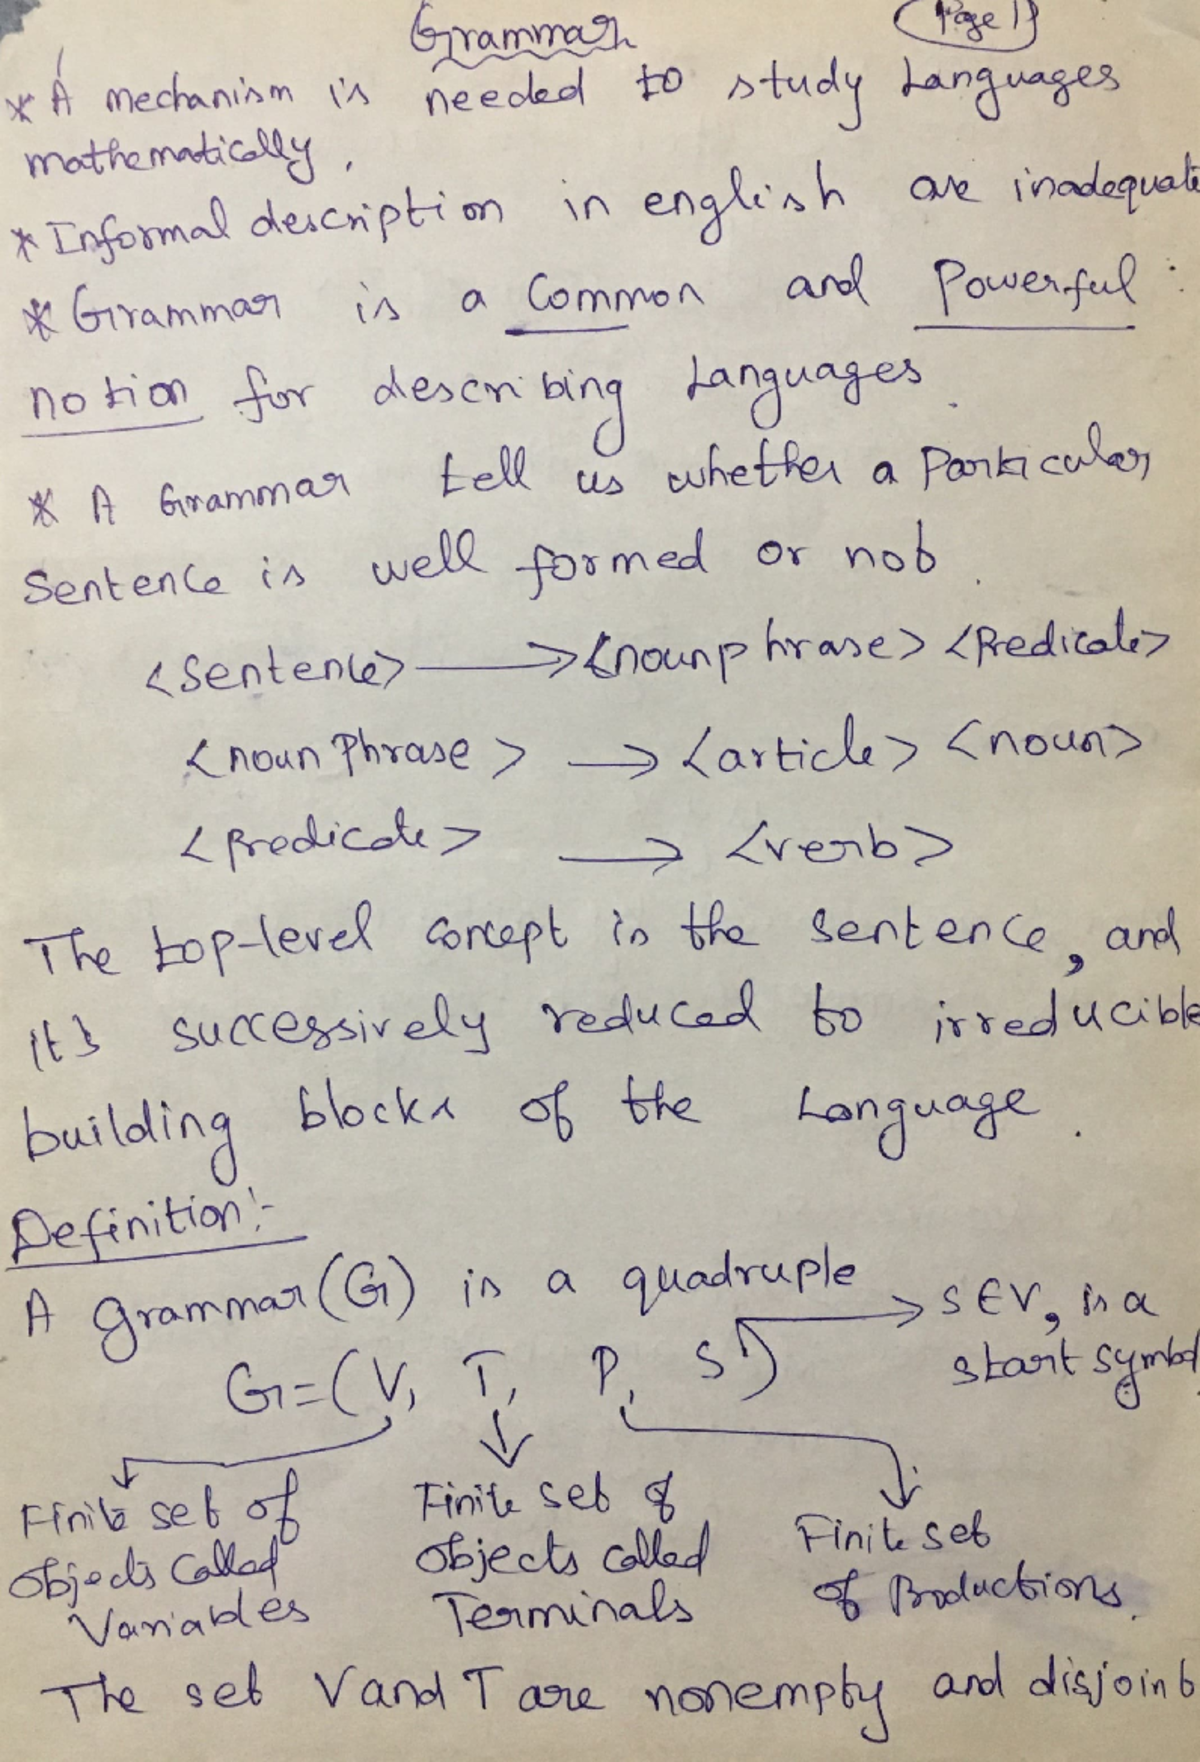 Grammar Page 1
* A mechanism is needed to study Languages
mathematically.
* Informal description in english are inadequate
* Grammar is a Common and Powerful
notion for describing Languages.
* A Grammar tell us whether a Particular
Sentence is well formed or not.
<Sentence> → <nounphrase> <Predicate>
<noun Phrase> → <article> <noun>
<Predicate> → <verb>
The top-level concept is the sentence, and
it's successively reduced to irreducible
building blocks of the Language.
Definition:-
A grammar (G) is a quadruple
G=(V, T, P, S) → S ∈ V, is a
start symbol
Finite set of
objects called
Variables
Finite set of
objects called
Terminals
Finite set
of Productions.
The set V and T are nonempty and disjoint